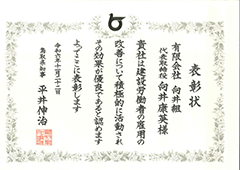 表彰状
有限会社 向井組
代表取締役 向井康英様
貴社は建設労働者の雇用の
改善について積極的に活動され
その効果が優良であると認めます
よってここに表彰します
令和三年十一月二十二日
鳥取県知事 平井伸治